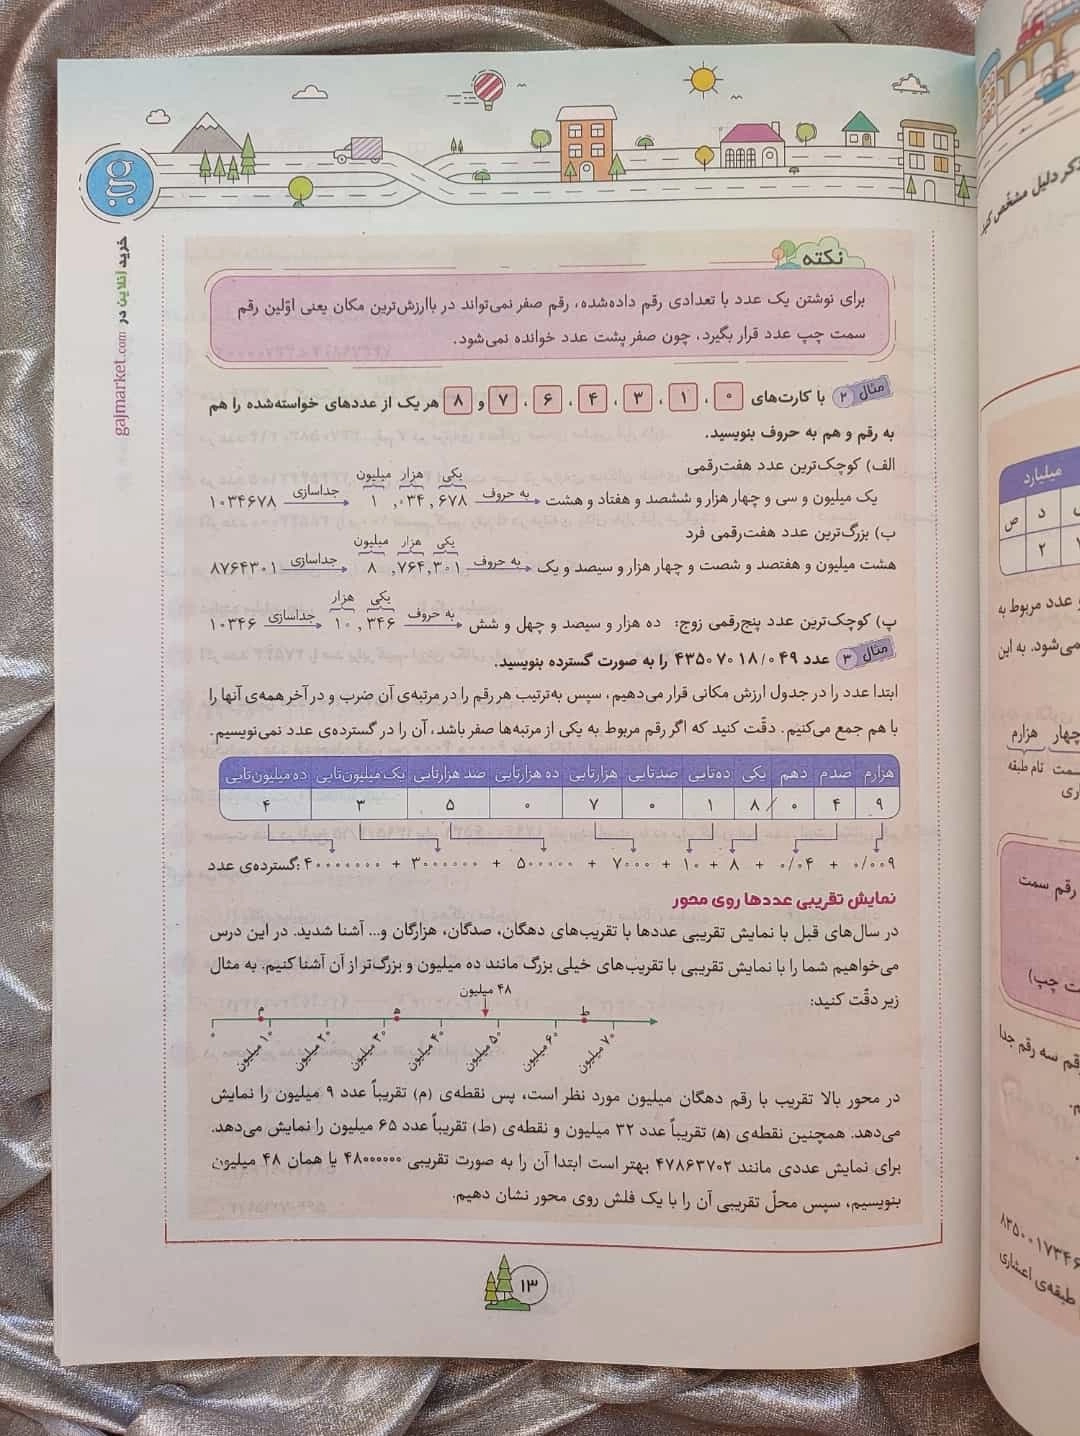 خرید آنلاین در gajmarket.com
نکته
برای نوشتن یک عدد با تعدادی رقم داده‌شده، رقم صفر نمی‌تواند در باارزش‌ترین مکان یعنی اوّلین رقم
سمت چپ عدد قرار بگیرد، چون صفر پشت عدد خوانده نمی‌شود.
مثال ۲ با کارت‌های ۰ ، ۱ ، ۳ ، ۴ ، ۶ ، ۷ و ۸ هر یک از عددهای خواسته‌شده را هم
به رقم و هم به حروف بنویسید.
الف) کوچک‌ترین عدد هفت‌رقمی
میلیون هزار یکی
۱۰۳۴۶۷۸ جداسازی ۱ ,۰۳۴,۶۷۸ به حروف یک میلیون و سی و چهار هزار و ششصد و هفتاد و هشت
ب) بزرگ‌ترین عدد هفت‌رقمی فرد
میلیون هزار یکی
۸۷۶۴۳۰۱ جداسازی ۸ ,۷۶۴,۳۰۱ به حروف هشت میلیون و هفتصد و شصت و چهار هزار و سیصد و یک
هزار یکی
پ) کوچک‌ترین عدد پنج‌رقمی زوج: ۱۰۳۴۶ جداسازی ۱۰,۳۴۶ به حروف ده هزار و سیصد و چهل و شش
مثال ۳ عدد ۴۳۵۰۷۰۱۸/۰۴۹ را به صورت گسترده بنویسید.
ابتدا عدد را در جدول ارزش مکانی قرار می‌دهیم، سپس به‌ترتیب هر رقم را در مرتبه‌ی آن ضرب و در آخر همه‌ی آنها را
با هم جمع می‌کنیم. دقّت کنید که اگر رقم مربوط به یکی از مرتبه‌ها صفر باشد، آن را در گسترده‌ی عدد نمی‌نویسیم.
ده میلیون‌تایی یک میلیون‌تایی صد هزارتایی ده هزارتایی هزارتایی صدتایی ده‌تایی یکی دهم صدم هزارم
۴ ۳ ۵ ۰ ۷ ۰ ۱ ۸ / ۰ ۴ ۹
گسترده‌ی عدد: ۴۰۰۰۰۰۰۰ + ۳۰۰۰۰۰۰ + ۵۰۰۰۰۰ + ۷۰۰۰ + ۱۰ + ۸ + ۰/۰۴ + ۰/۰۰۹
نمایش تقریبی عددها روی محور
در سال‌های قبل با نمایش تقریبی عددها با تقریب‌های دهگان، صدگان، هزارگان و... آشنا شدید. در این درس
می‌خواهیم شما را با نمایش تقریبی با تقریب‌های خیلی بزرگ مانند ده میلیون و بزرگ‌تر از آن آشنا کنیم. به مثال
زیر دقّت کنید:
۴۸ میلیون
م ه ط
۱۰ میلیون ۲۰ میلیون ۳۰ میلیون ۴۰ میلیون ۵۰ میلیون ۶۰ میلیون ۷۰ میلیون
در محور بالا تقریب با رقم دهگان میلیون مورد نظر است، پس نقطه‌ی (م) تقریباً عدد ۹ میلیون را نمایش
می‌دهد. همچنین نقطه‌ی (ه) تقریباً عدد ۳۲ میلیون و نقطه‌ی (ط) تقریباً عدد ۶۵ میلیون را نمایش می‌دهد.
برای نمایش عددی مانند ۴۷۸۶۳۷۰۲ بهتر است ابتدا آن را به صورت تقریبی ۴۸۰۰۰۰۰۰ یا همان ۴۸ میلیون
بنویسیم، سپس محلّ تقریبی آن را با یک فلش روی محور نشان دهیم.
۱۳
ذکر دلیل مشخّص کنید
میلیارد
د ص
۲
و عدد مربوط به
می‌شود. به این
چهار هزارم
سمت نام طبقه
رقم سمت
ت چپ)
قم سه رقم جدا
۸۳۵۰۰۱۷۳۴۶
طبقه‌ی اعشاری